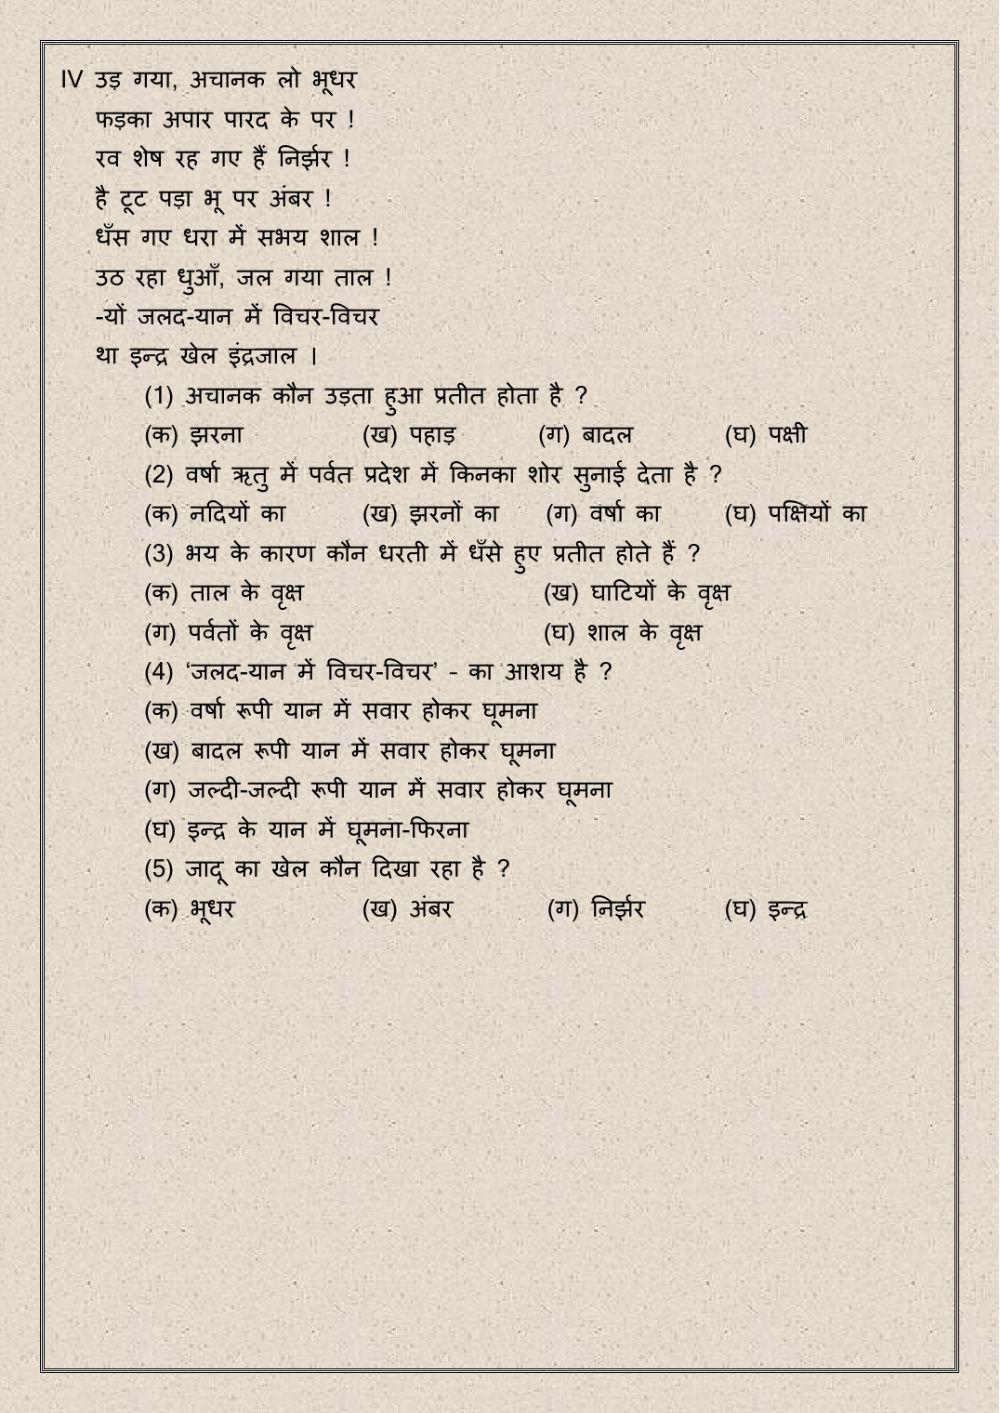 IV उड़ गया, अचानक लो भूधर
फड़का अपार पारद के पर !
रव शेष रह गए हैं निर्झर !
है टूट पड़ा भू पर अंबर !
धँस गए धरा में सभय शाल !
उठ रहा धुआँ, जल गया ताल !
-यों जलद-यान में विचर-विचर
था इन्द्र खेल इंद्रजाल ।
(1) अचानक कौन उड़ता हुआ प्रतीत होता है ?
(क) झरना (ख) पहाड़ (ग) बादल (घ) पक्षी
(2) वर्षा ऋतु में पर्वत प्रदेश में किनका शोर सुनाई देता है ?
(क) नदियों का (ख) झरनों का (ग) वर्षा का (घ) पक्षियों का
(3) भय के कारण कौन धरती में धँसे हुए प्रतीत होते हैं ?
(क) ताल के वृक्ष (ख) घाटियों के वृक्ष
(ग) पर्वतों के वृक्ष (घ) शाल के वृक्ष
(4) ‘जलद-यान में विचर-विचर’ – का आशय है ?
(क) वर्षा रूपी यान में सवार होकर घूमना
(ख) बादल रूपी यान में सवार होकर घूमना
(ग) जल्दी-जल्दी रूपी यान में सवार होकर घूमना
(घ) इन्द्र के यान में घूमना-फिरना
(5) जादू का खेल कौन दिखा रहा है ?
(क) भूधर (ख) अंबर (ग) निर्झर (घ) इन्द्र